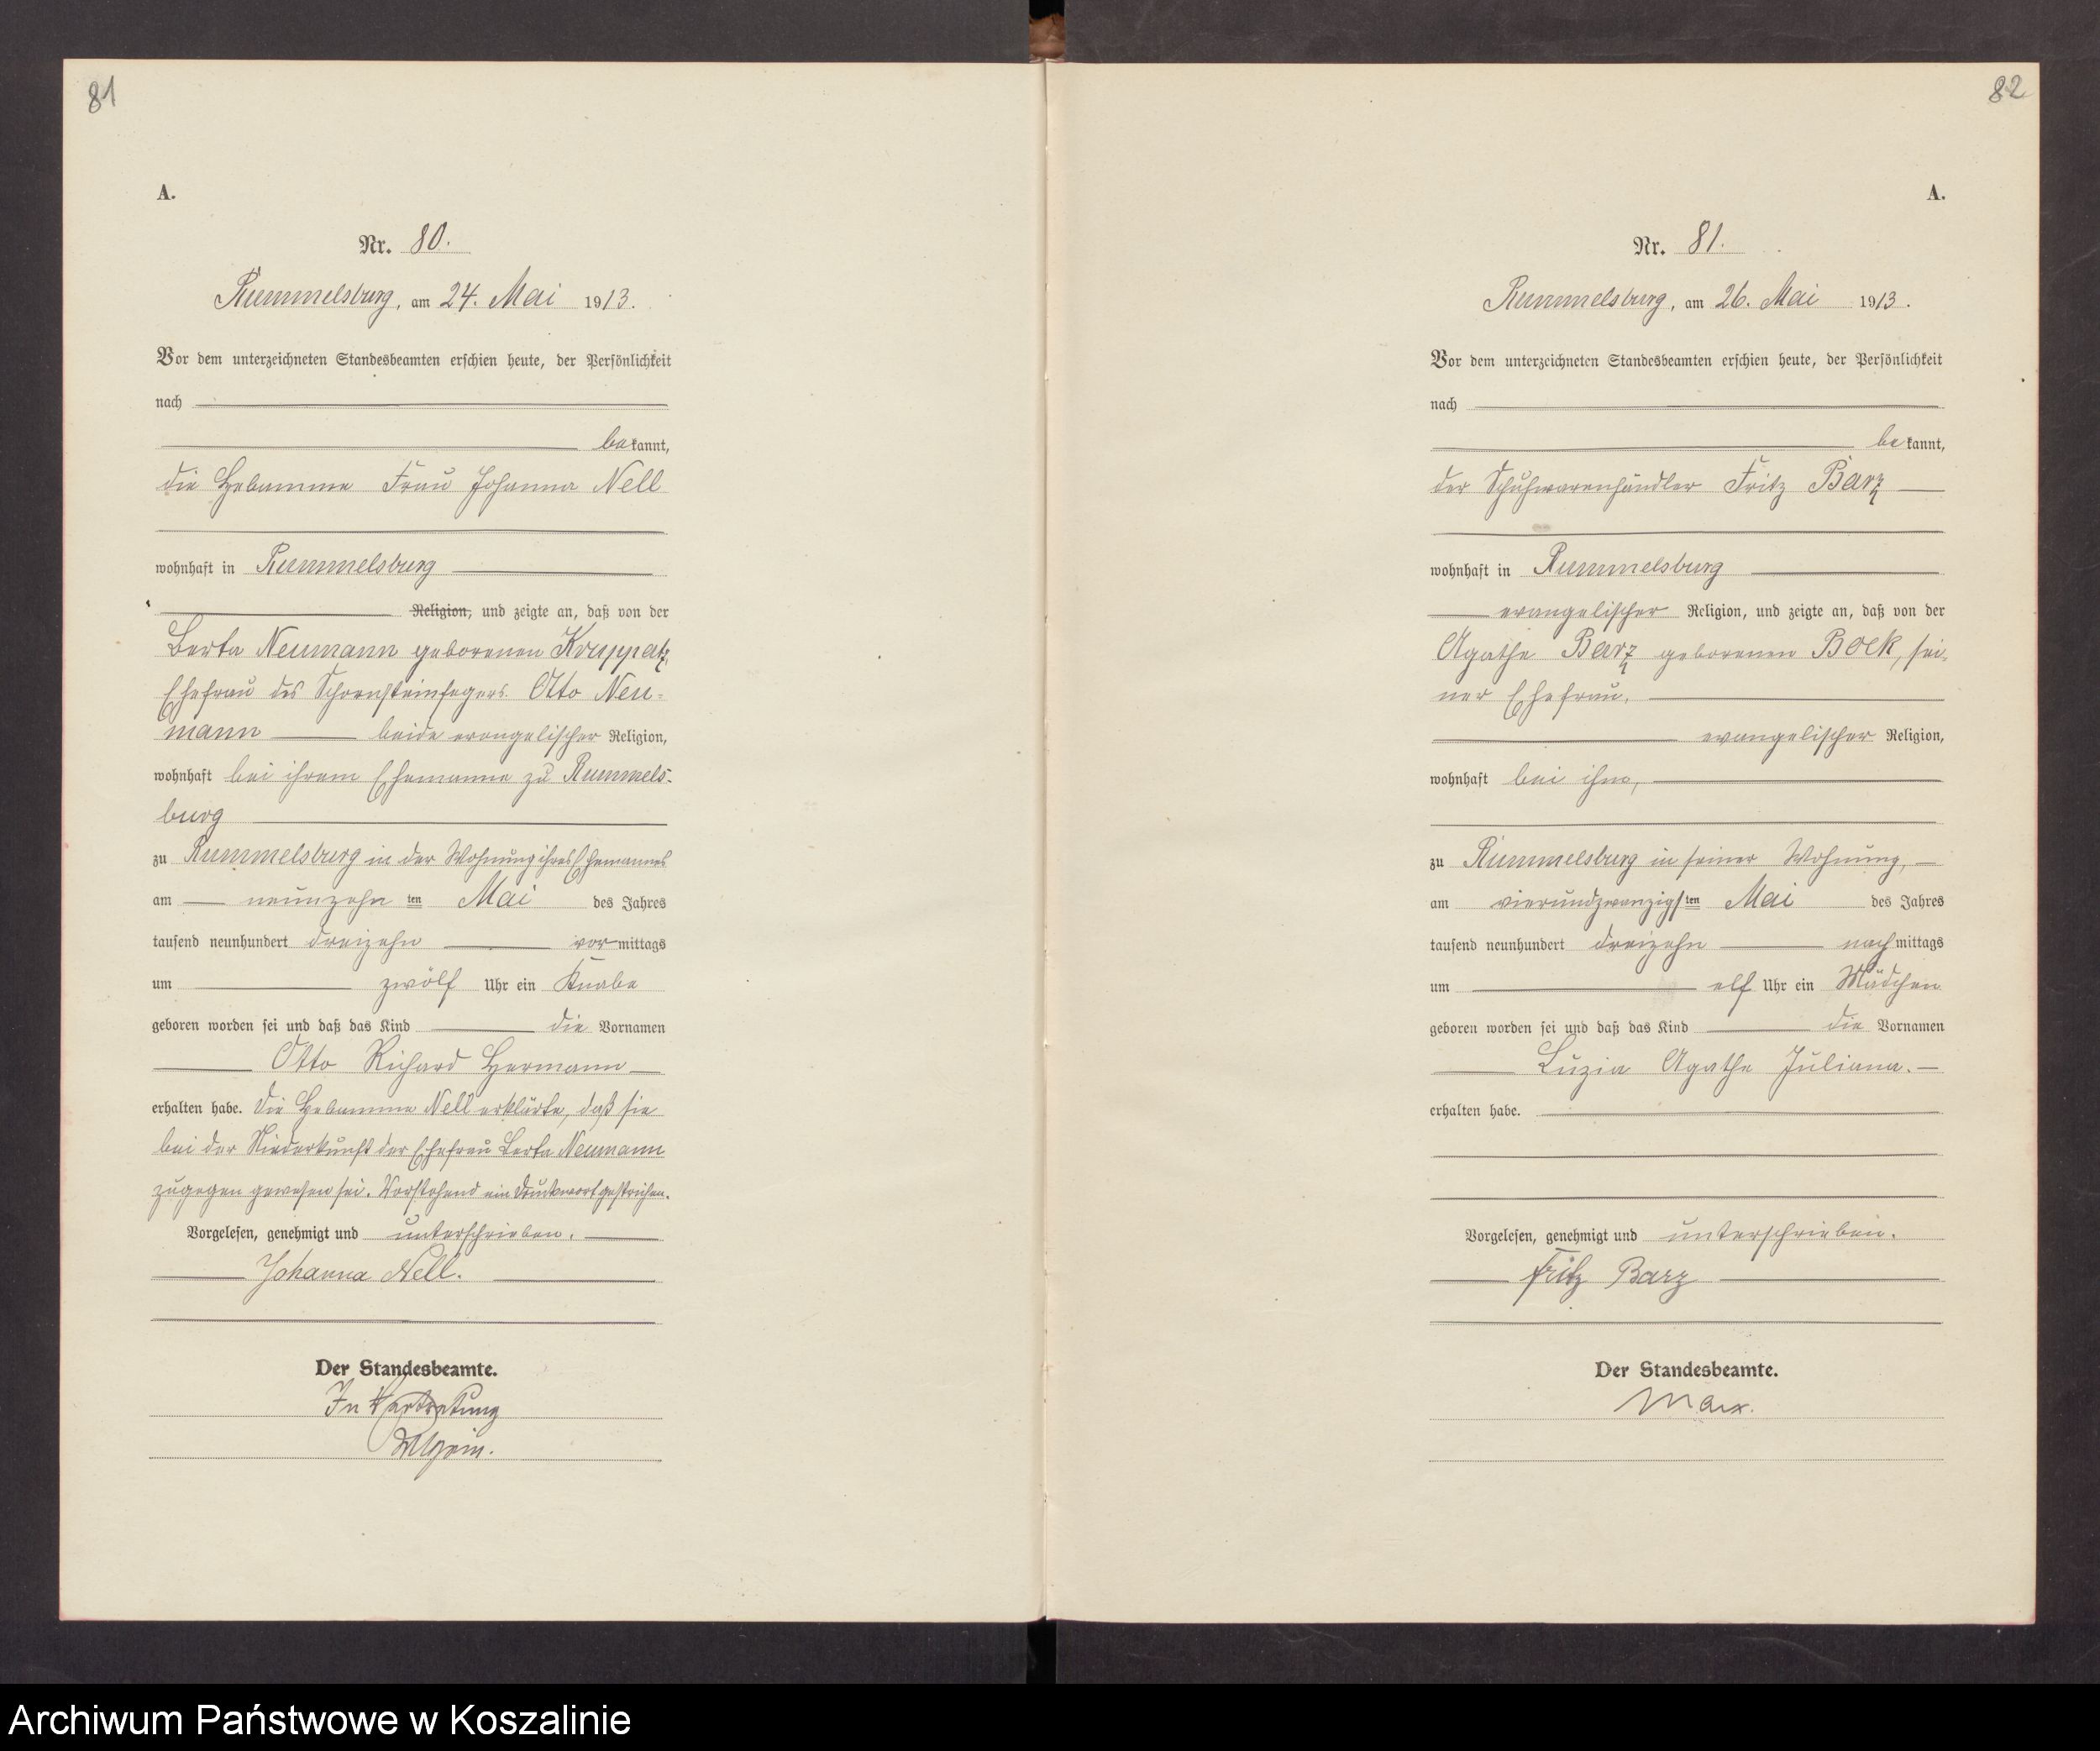 81
A.
Nr. 80.
Rummelsburg, am 24. Mai 1913.
Vor dem unterzeichneten Standesbeamten erschien heute, der Persönlichkeit
nach
bekannt,
die Hebamme Frau Johanna Nell
wohnhaft in Rummelsburg
Religion, und zeigte an, daß von der
Berta Neumann geborenen Kruppatz,
Ehefrau des Schornsteinfegers Otto Neu-
mann beide evangelischer Religion,
wohnhaft bei ihrem Ehemanne zu Rummels-
burg
zu Rummelsburg in der Wohnung ihres Ehemannes
am neunzehnten Mai des Jahres
tausend neunhundert dreizehn vormittags
um zwölf Uhr ein Knabe
geboren worden sei und daß das Kind die Vornamen
Otto Richard Hermann
erhalten habe. Die Hebamme Nell erklärte, daß sie
bei der Niederkunft der Ehefrau Berta Neumann
zugegen gewesen sei. Vorstehend ein Druckwort gestrichen.
Vorgelesen, genehmigt und unterschrieben.
Johanna Nell.
Der Standesbeamte.
In Vertretung
82
A.
Nr. 81.
Rummelsburg, am 26. Mai 1913.
Vor dem unterzeichneten Standesbeamten erschien heute, der Persönlichkeit
nach
bekannt,
der Schuhwarenhändler Fritz Barz
wohnhaft in Rummelsburg
evangelischer Religion, und zeigte an, daß von der
Agathe Barz geborenen Bock, sei-
ner Ehefrau,
evangelischer Religion,
wohnhaft bei ihm,
zu Rummelsburg in seiner Wohnung,
am vierundzwanzigsten Mai des Jahres
tausend neunhundert dreizehn nachmittags
um elf Uhr ein Mädchen
geboren worden sei und daß das Kind die Vornamen
Luzia Agathe Juliana.
erhalten habe.
Vorgelesen, genehmigt und unterschrieben.
Fritz Barz
Der Standesbeamte.
Marx.
Archiwum Państwowe w Koszalinie